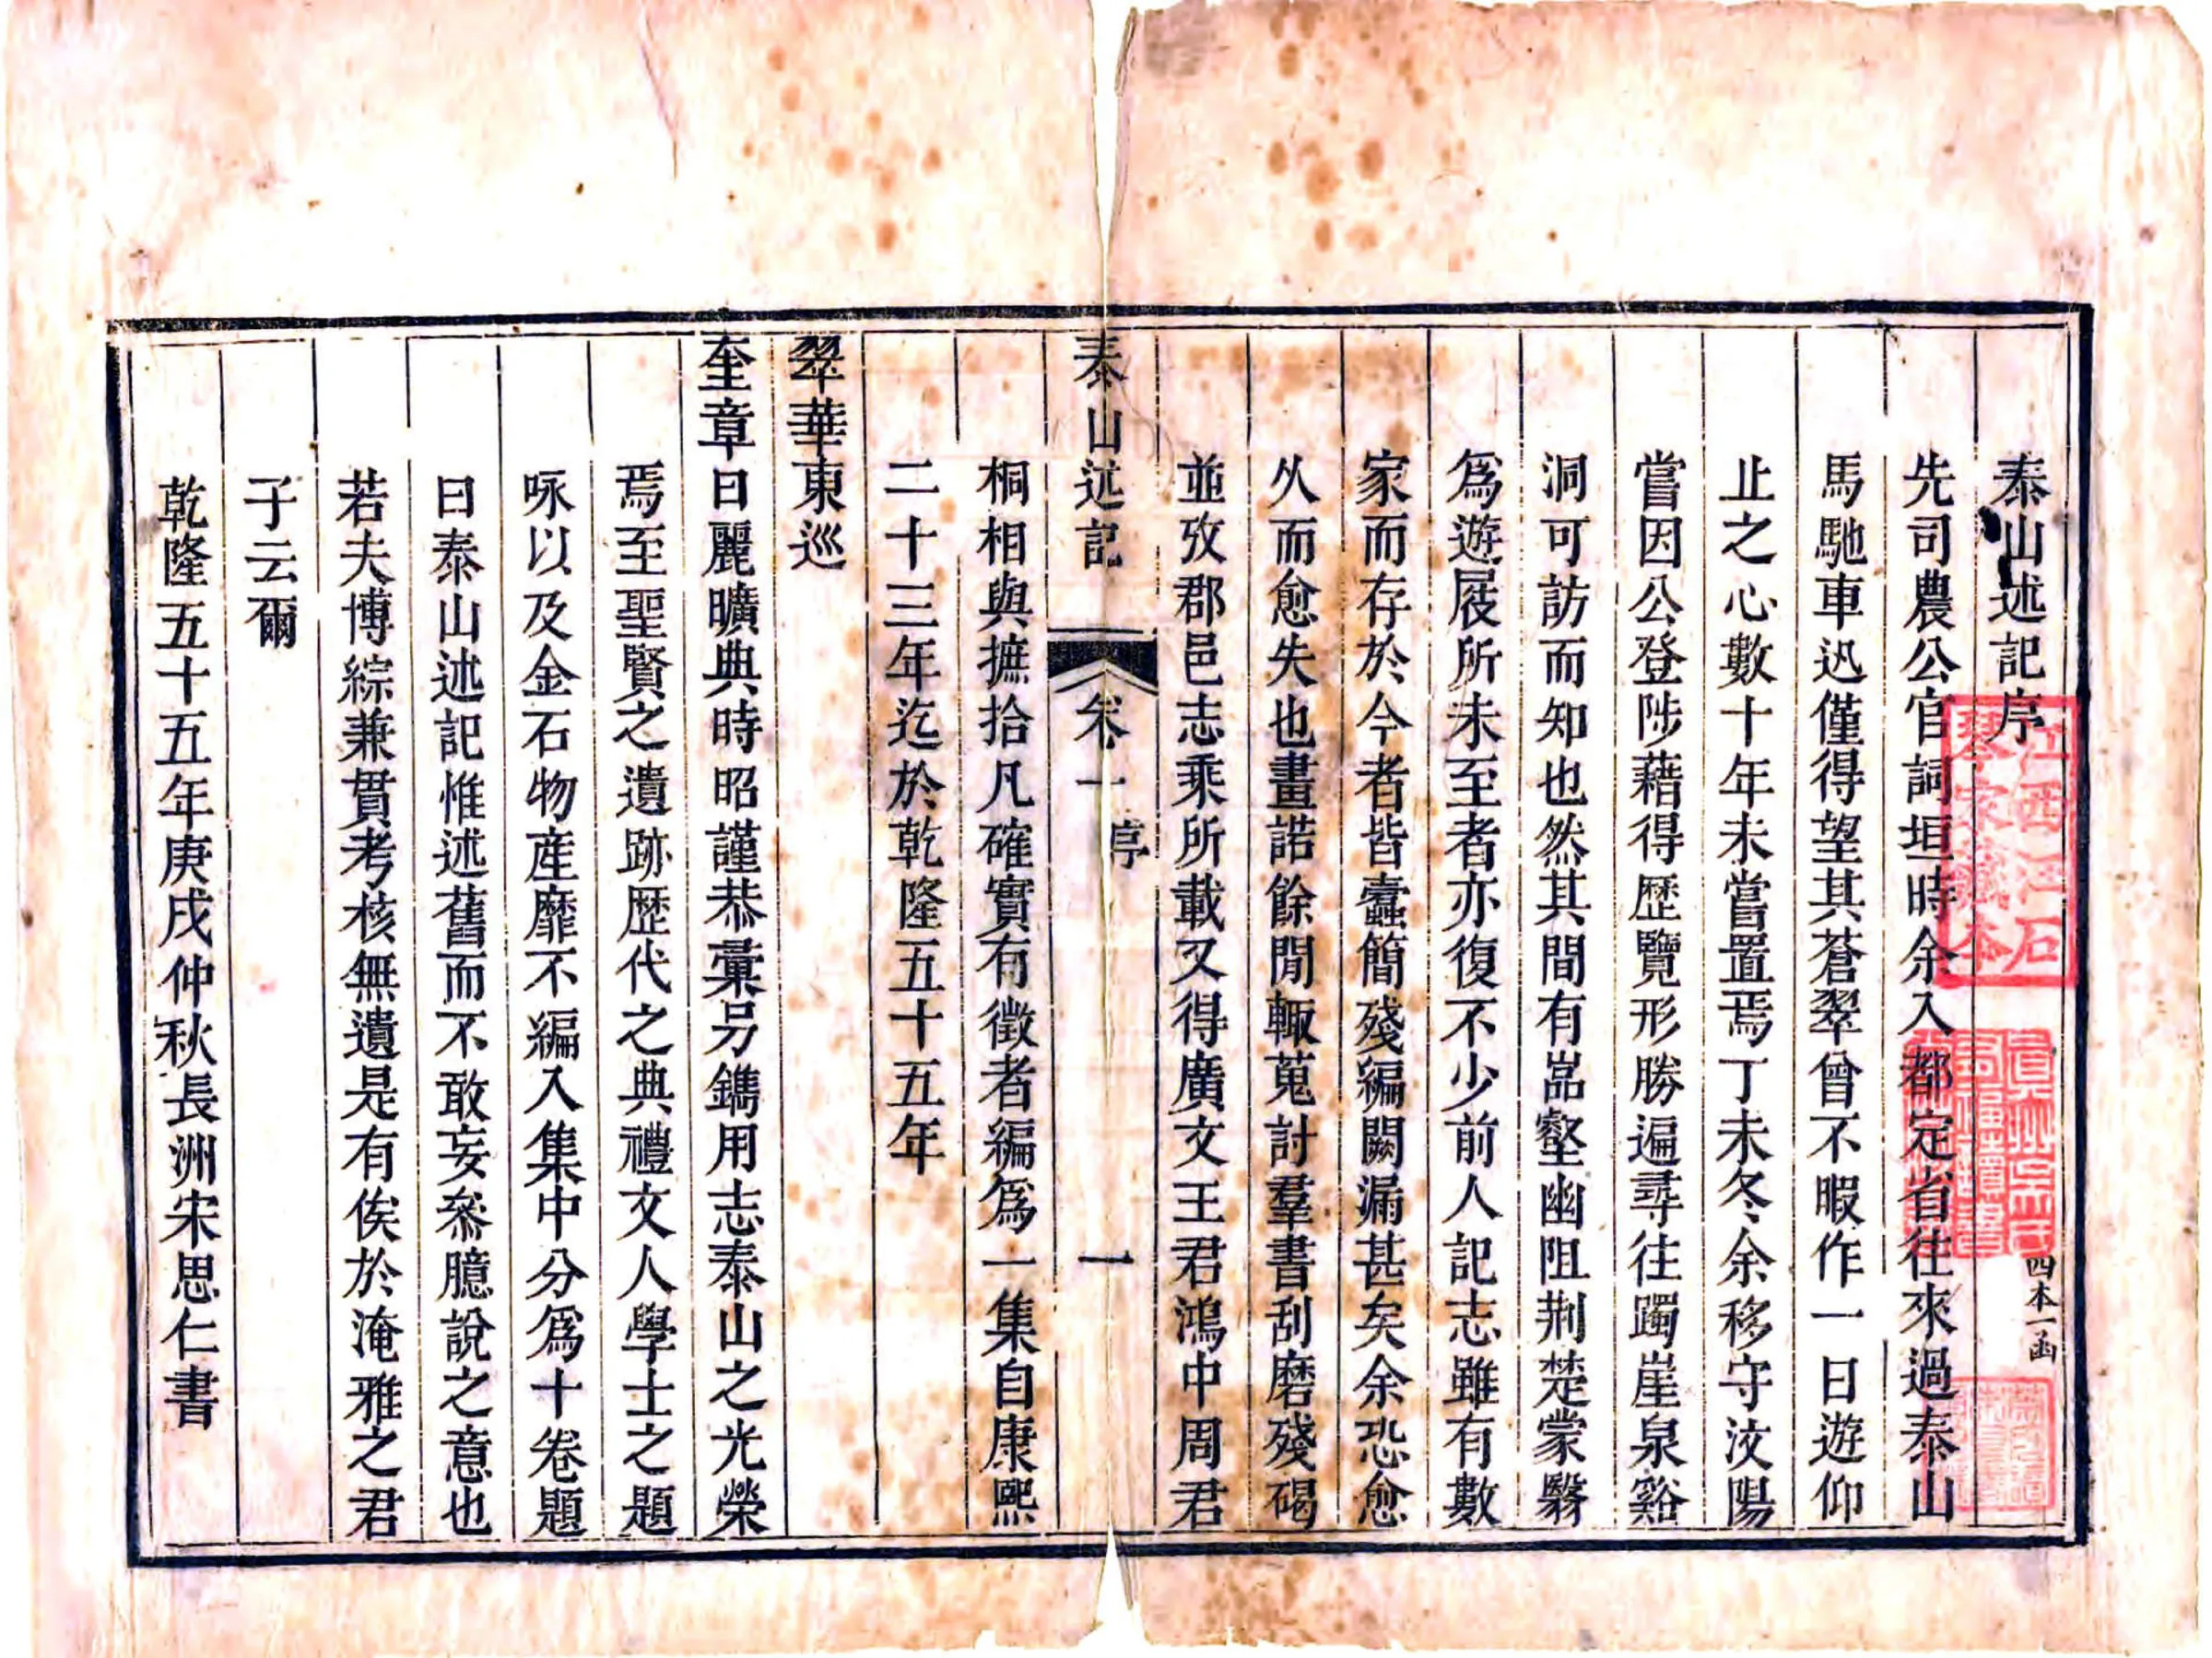 泰山述記序
先司農公官詞垣時余入都定省往來過泰山
馬馳車迅僅得望其蒼翠曾不暇作一日遊仰
止之心數十年未嘗置焉丁未冬余移守汶陽
嘗因公登陟藉得歷覽形勝遍尋往躅崖泉谿
洞可訪而知也然其間有嵓壑幽阻荆楚蒙翳
爲遊屐所未至者亦復不少前人記志雖有數
家而存於今者皆蠹簡殘編闕漏甚矣余恐愈
久而愈失也畫諾餘閒輙蒐討羣書刮磨殘碣
並攷郡邑志乘所載又得廣文王君鴻中周君
泰山述記 卷一 序 一
桐相與摭拾凡確實有徵者編爲一集自康熙
二十三年迄於乾隆五十五年
翠華東巡
奎章日麗曠典時昭謹恭彙另鐫用志泰山之光榮
焉至聖賢之遺跡歷代之典禮文人學士之題
咏以及金石物産靡不編入集中分爲十卷題
曰泰山述記惟述舊而不敢妄叅臆說之意也
若夫博綜兼貫考核無遺是有俟於淹雅之君
子云爾
乾隆五十五年庚戌仲秋長洲宋思仁書
四本一函